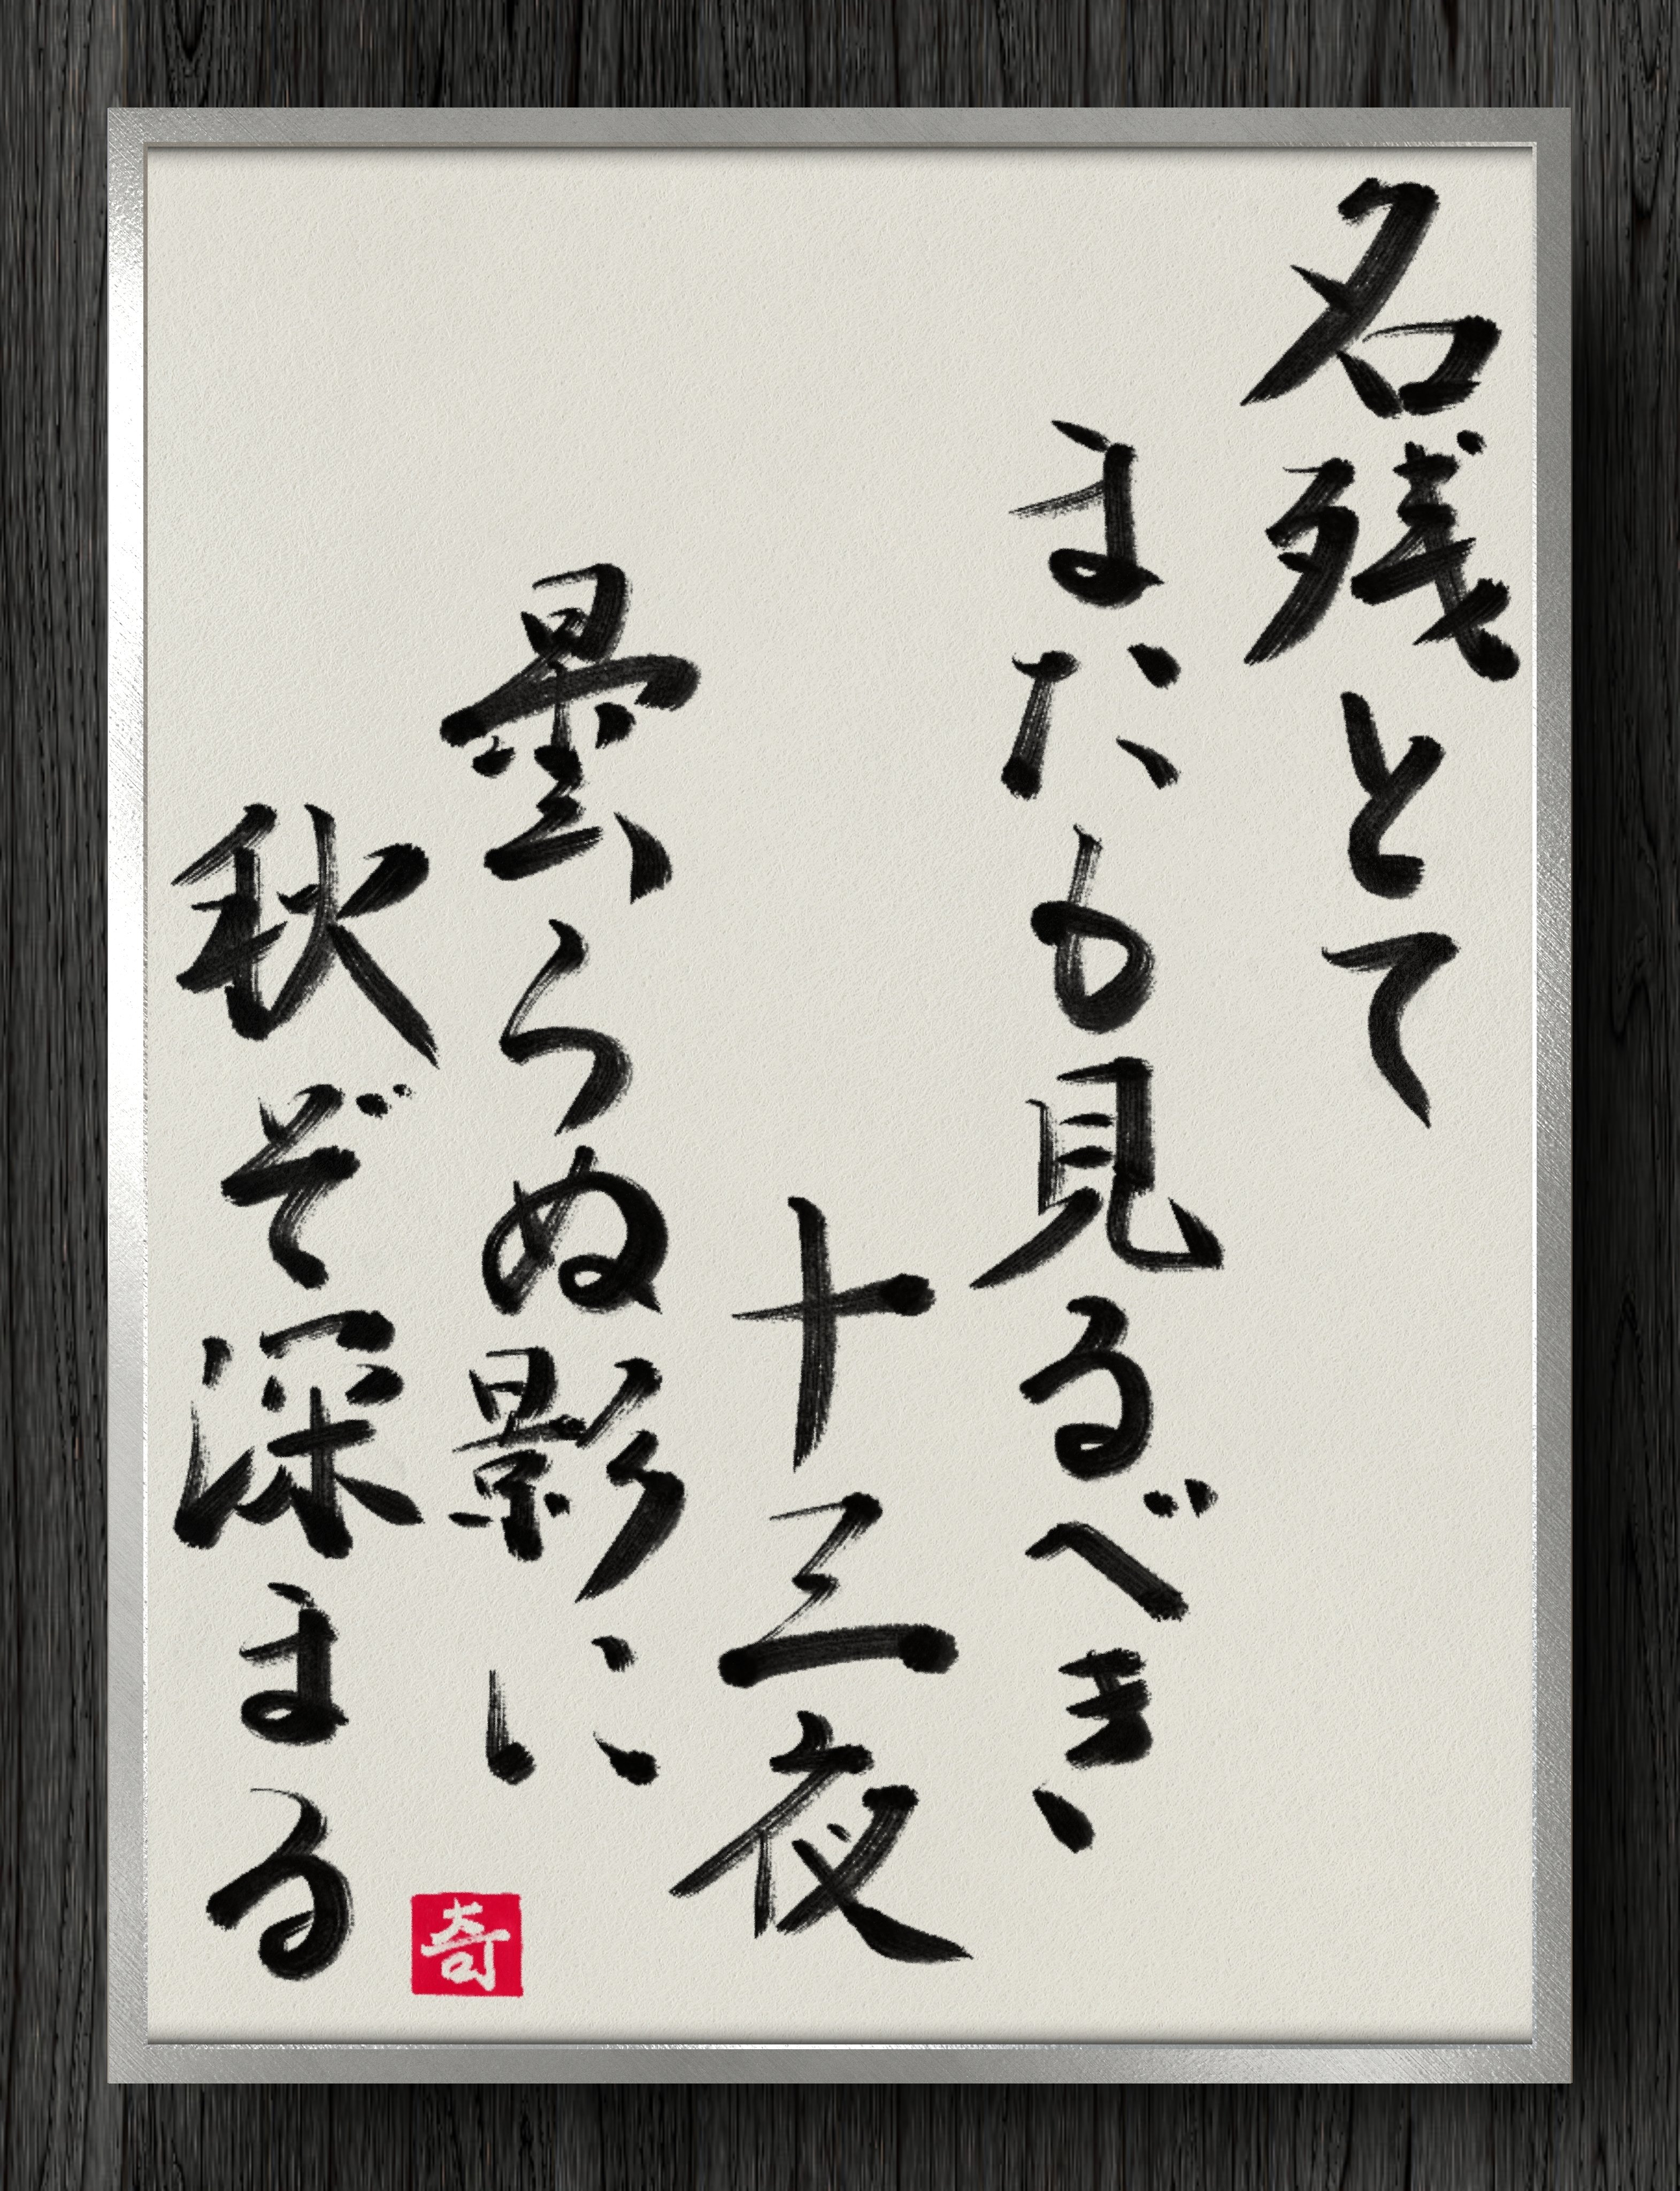 名残とて
まだも見るべき
十三夜
曇らぬ影に
秋ぞ深まる
奇